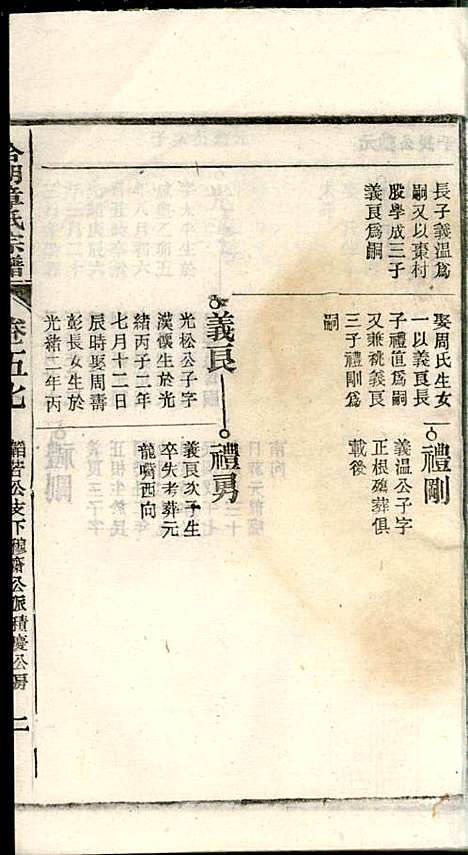 長子義温爲
嗣又以棗村
股學成三子
義良爲嗣
娶周氏生女
一以義良長
子禮值爲嗣
又兼祧義良
三子禮剛爲
嗣
禮剛
義温公子字
正根殤葬俱
載後
義良
光松公子字
漢懷生於光
緒丙子二年
七月十二日
辰時娶周壽
彭長女生於
光緒二年丙
禮勇
義良次子生
卒失考葬元
龍嘴西向
章氏宗譜
卷五七
公支下穆齋公派積慶公房
二